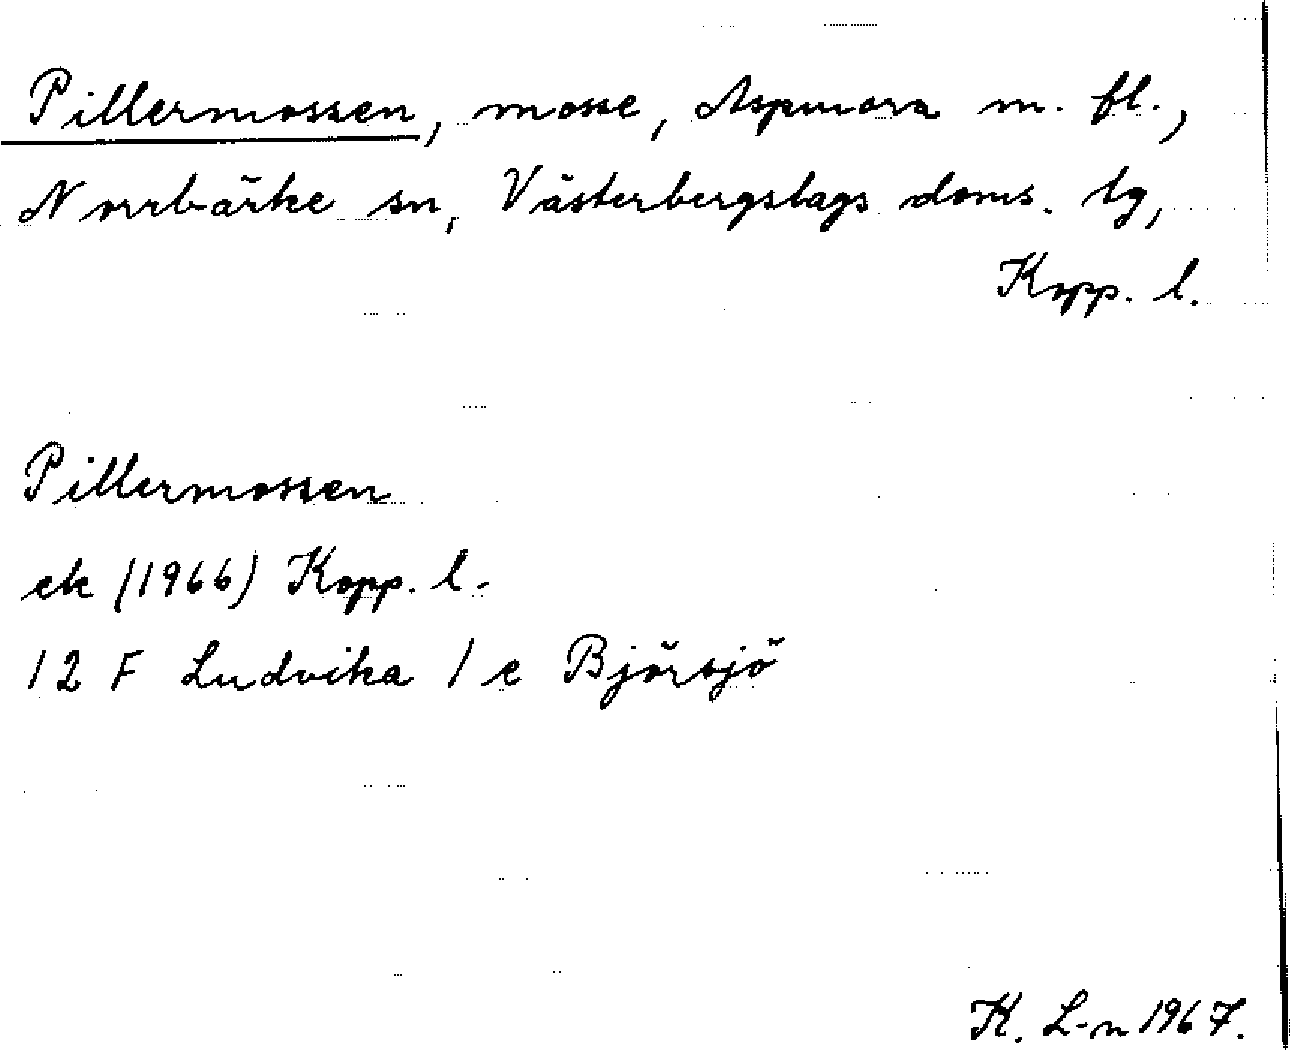 Pillermossen, mosse, Aspnora m. fl.,
Norrbärke sn, Västerbergslags doms. tg,
Kopp. l.
Pillermossen
ek (1966) Kopp. l.
12 F Ludvika / e Björsjö
K. L-n 1967.